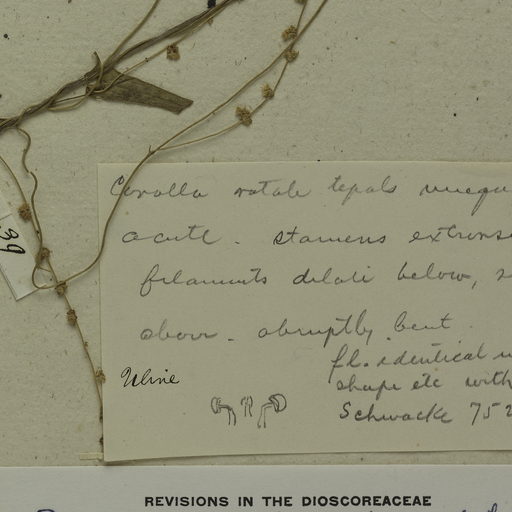 39
Corolla rotate tepals unequ
acute. stamens extrorse
filaments dilati below,
above. abruptly bent.
fl. identical
shape etc with
Uline
Schwacke 752
REVISIONS IN THE DIOSCOREACEAE